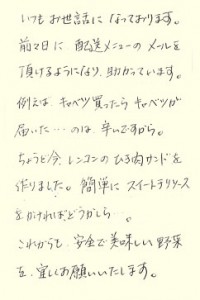 いつもお世話になっております。
前々日に 配送メニューの メールを
頂けるようになり、助かっています。
例えば、キャベツ買ったら キャベツが
届いた…のは、辛いですから。
ちょうど今、レンコンの ひき肉サンドを
作りました。簡単に スイートチリソース
をかければどうかしら…。
これからも、安全で美味しい野菜
を、宜しくお願いいたします。